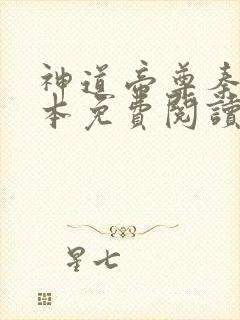 神道帝尊秦
本免費閱讀
星七